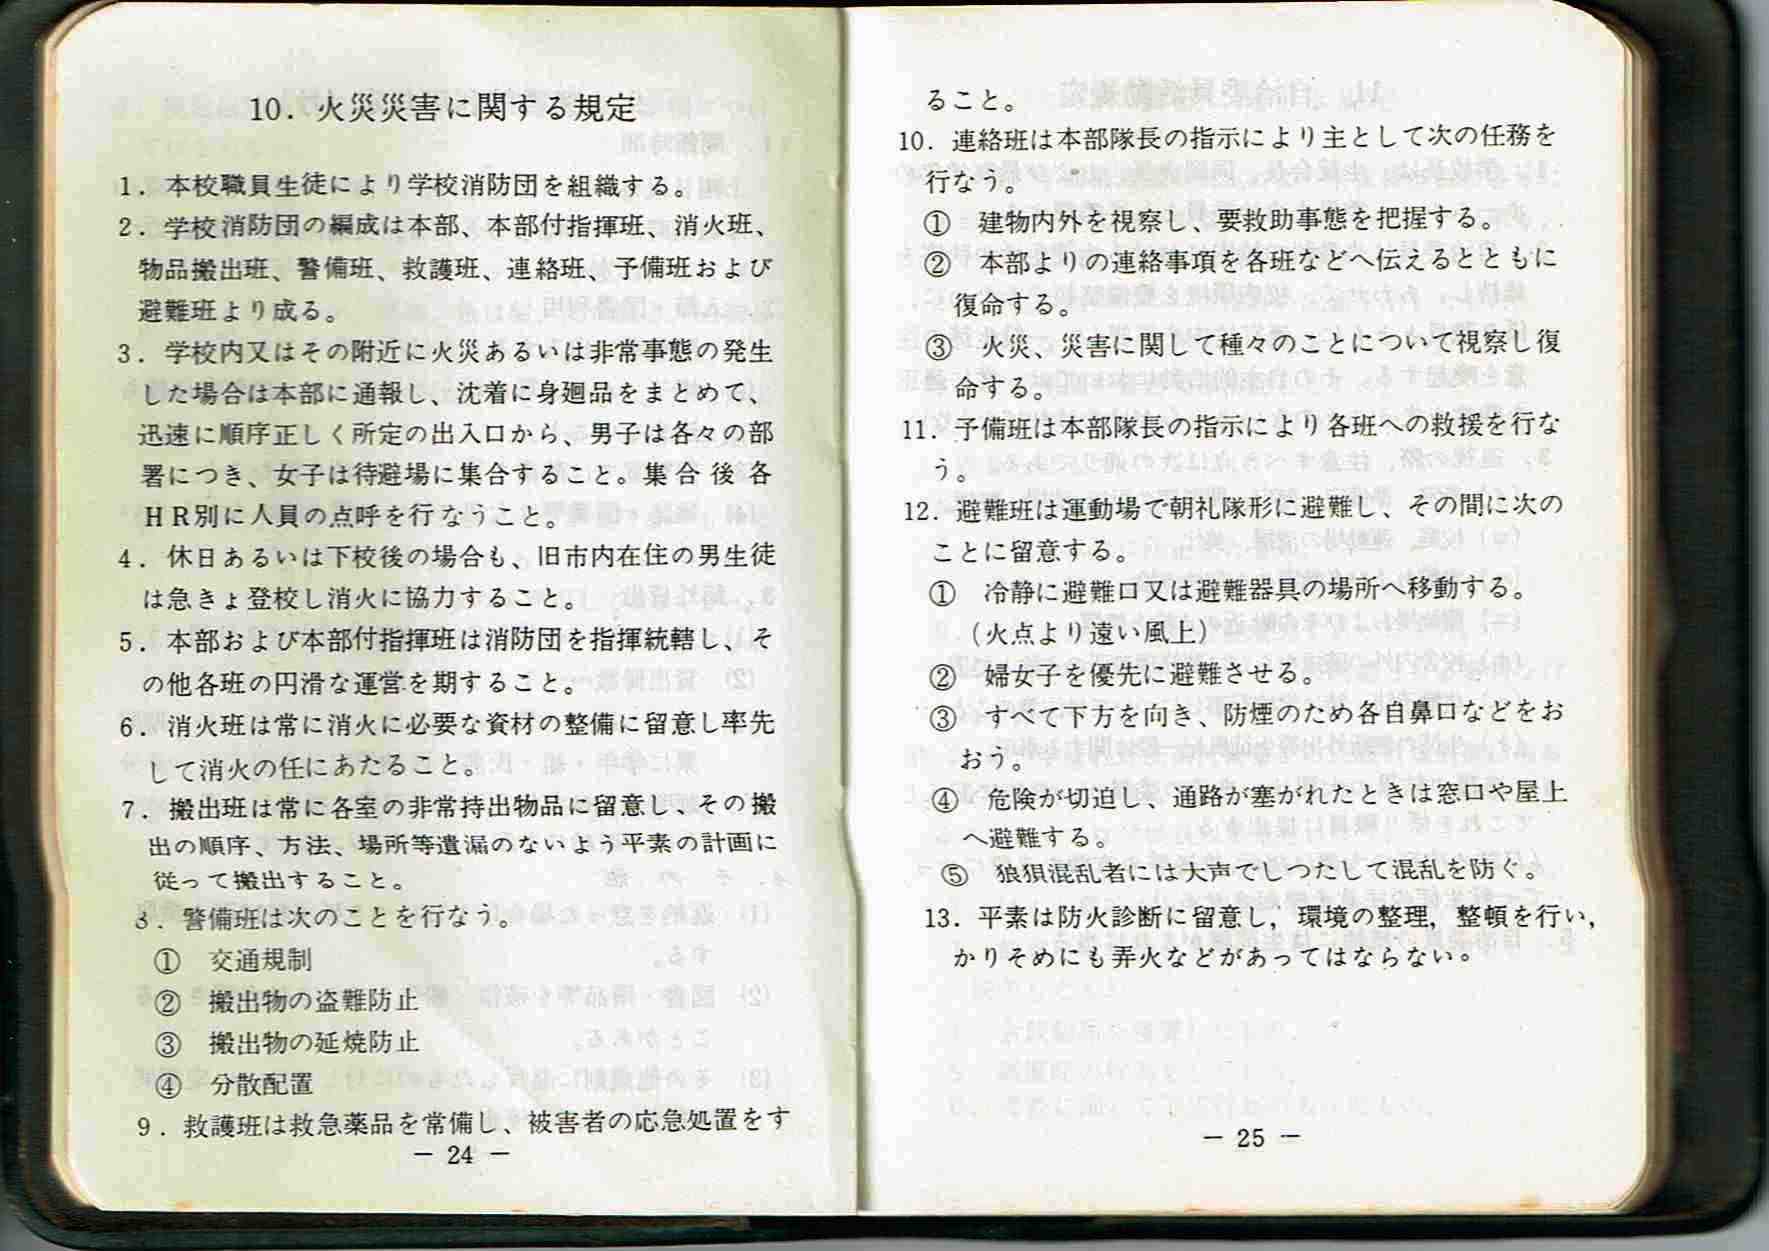 10. 火災災害に関する規定
1. 本校職員生徒により学校消防団を組織する。
2. 学校消防団の編成は本部、本部付指揮班、消火班、
物品搬出班、警備班、救護班、連絡班、予備班および
避難班より成る。
3. 学校内又はその附近に火災あるいは非常事態の発生
した場合は本部に通報し、沈着に身廻品をまとめて、
迅速に順序正しく所定の出入口から、男子は各々の部
署につき、女子は待避場に集合すること。集合後各
HR別に人員の点呼を行なうこと。
4. 休日あるいは下校後の場合も、旧市内在住の男生徒
は急きょ登校し消火に協力すること。
5. 本部および本部付指揮班は消防団を指揮統轄し、そ
の他各班の円滑な運営を期すること。
6. 消火班は常に消火に必要な資材の整備に留意し率先
して消火の任にあたること。
7. 搬出班は常に各室の非常持出物品に留意し、その搬
出の順序、方法、場所等遺漏のないよう平素の計画に
従って搬出すること。
8. 警備班は次のことを行なう。
① 交通規制
② 搬出物の盗難防止
③ 搬出物の延焼防止
④ 分散配置
9. 救護班は救急薬品を常備し、被害者の応急処置をす
― 24 ―
ること。
10. 連絡班は本部隊長の指示により主として次の任務を
行なう。
① 建物内外を視察し、要救助事態を把握する。
② 本部よりの連絡事項を各班などへ伝えるとともに
復命する。
③ 火災、災害に関して種々のことについて視察し復
命する。
11. 予備班は本部隊長の指示により各班への救援を行な
う。
12. 避難班は運動場で朝礼隊形に避難し、その間に次の
ことに留意する。
① 冷静に避難口又は避難器具の場所へ移動する。
(火点より遠い風上)
② 婦女子を優先に避難させる。
③ すべて下方を向き、防煙のため各自鼻口などをお
おう。
④ 危険が切迫し、通路が塞がれたときは窓口や屋上
へ避難する。
⑤ 狼狽混乱者には大声でしつたして混乱を防ぐ。
13. 平素は防火診断に留意し，環境の整理，整頓を行い，
かりそめにも弄火などがあってはならない。
― 25 ―